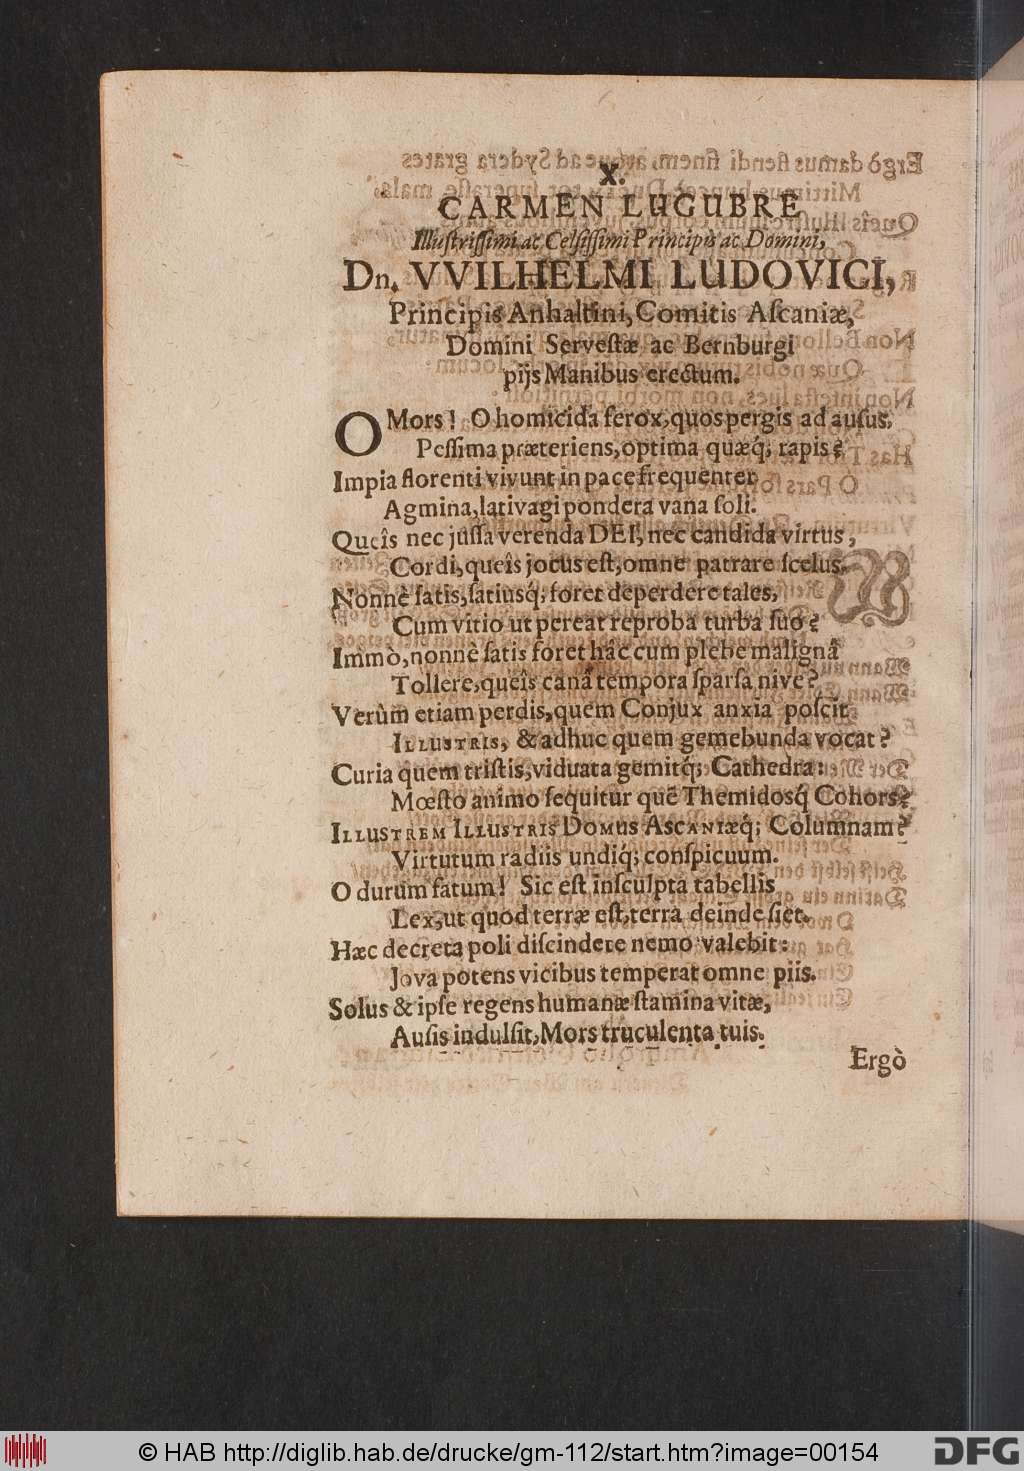 X.
CARMEN LUGUBRE
Illustrissimi ac Celsissimi Principis ac Domini,
Dn. VVILHELMI LUDOVICI,
Principis Anhaltini, Comitis Ascaniæ,
Domini Servestæ ac Bernburgi
pijs Manibus erectum.
O Mors! O homicida ferox, quos pergis ad ausus,
Pessima præteriens, optima quæq́; rapis?
Impia florenti vivunt in pace frequenter
Agmina, lativagi pondera vana soli.
Queîs nec jussa verenda DEI, nec candida virtus,
Cordi, queîs jocus est, omne patrare scelus.
Nonnè satis, satiusq́; foret deperdere tales,
Cum vitio ut pereat reproba turba suo?
Immò, nonnè satis foret hâc cum plebe malignâ
Tollere, queîs canâ tempora sparsa nive?
Verùm etiam perdis, quem Conjux anxia poscit
ILLUSTRIS, & adhuc quem gemebunda vocat?
Curia quem tristis, viduata gemitq́; Cathedra:
Mœsto animo sequitur quē Themidosq́ Cohors?
ILLUSTREM ILLUSTRIS DOMUS ASCANIÆq́; Columnam?
Virtutum radiis undiq́; conspicuum.
O durum fatum! Sic est insculpta tabellis
Lex, ut quod terræ est, terra deinde siet.
Hæc decreta poli discindere nemo valebit:
Jova potens vicibus temperat omne piis.
Solus & ipse regens humanæ stamina vitæ,
Ausis indulsit, Mors truculenta tuis.
Ergò
© HAB http://diglib.hab.de/drucke/gm-112/start.htm?image=00154
DFG